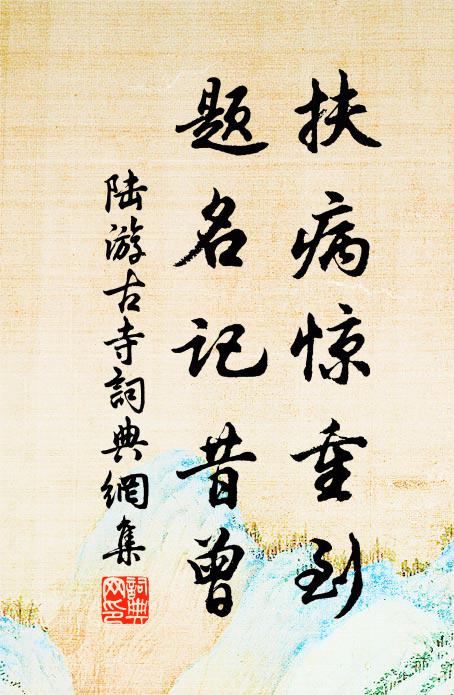 扶病惊重到
题名记昔曾
陆游古寺詞典網集
詞典網印